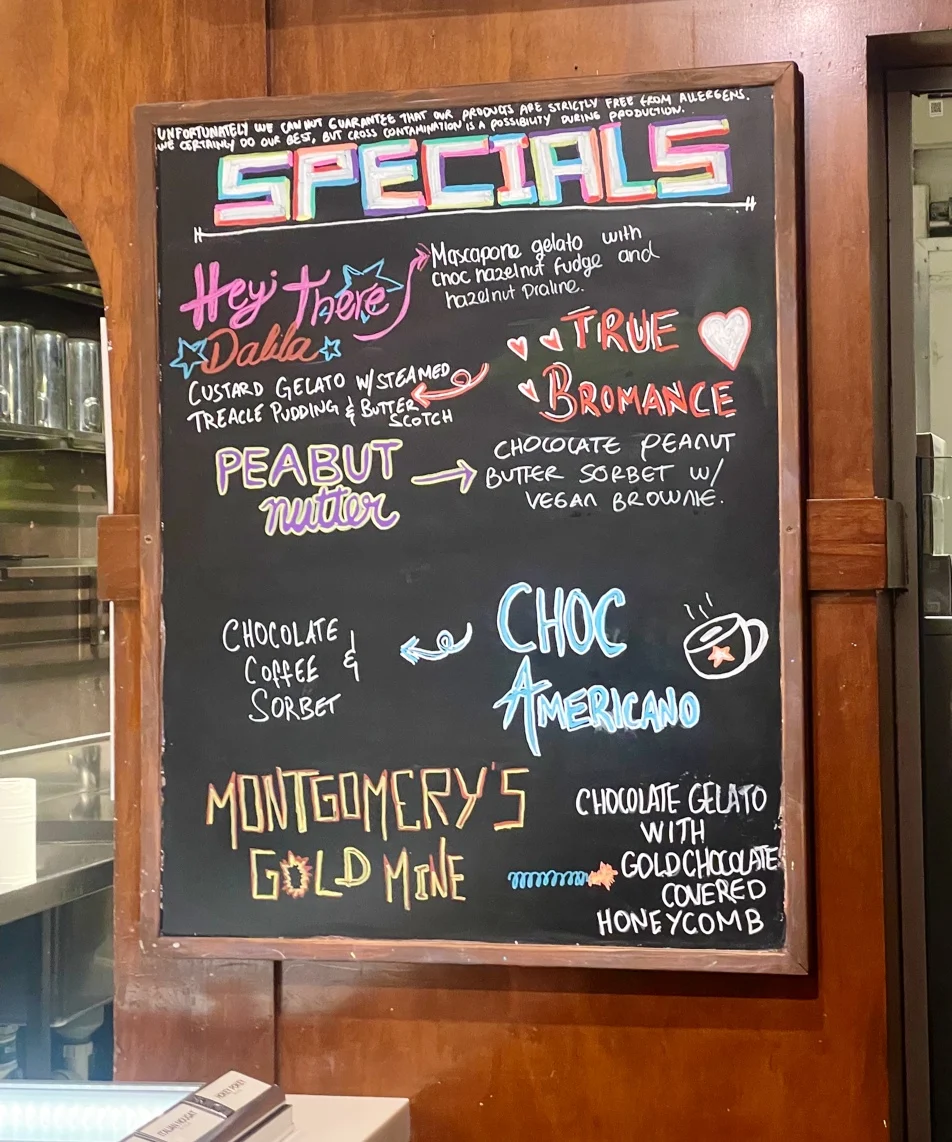 UNFORTUNATELY WE CAN NOT GUARANTEE THAT OUR PRODUCTS ARE STRICTLY FREE FROM ALLERGENS.
WE CERTAINLY DO OUR BEST, BUT CROSS CONTAMINATION IS A POSSIBILITY DURING PRODUCTION.
SPECIALS
Hey There
Dalila
Mascapone gelato with
choc hazelnut fudge and
hazelnut praline.
TRUE
BROMANCE
CUSTARD GELATO W/STEAMED
TREACLE PUDDING & BUTTER
SCOTCH
PEABUT
nutter
CHOCOLATE PEANUT
BUTTER SORBET W/
VEGAN BROWNIE.
CHOC
AMERICANO
CHOCOLATE
COFFEE &
SORBET
MONTGOMERY'S
GOLD MINE
CHOCOLATE GELATO
WITH
GOLD CHOCOLATE
COVERED
HONEYCOMB
ITALIAN NOUGAT
HONEY POKEY